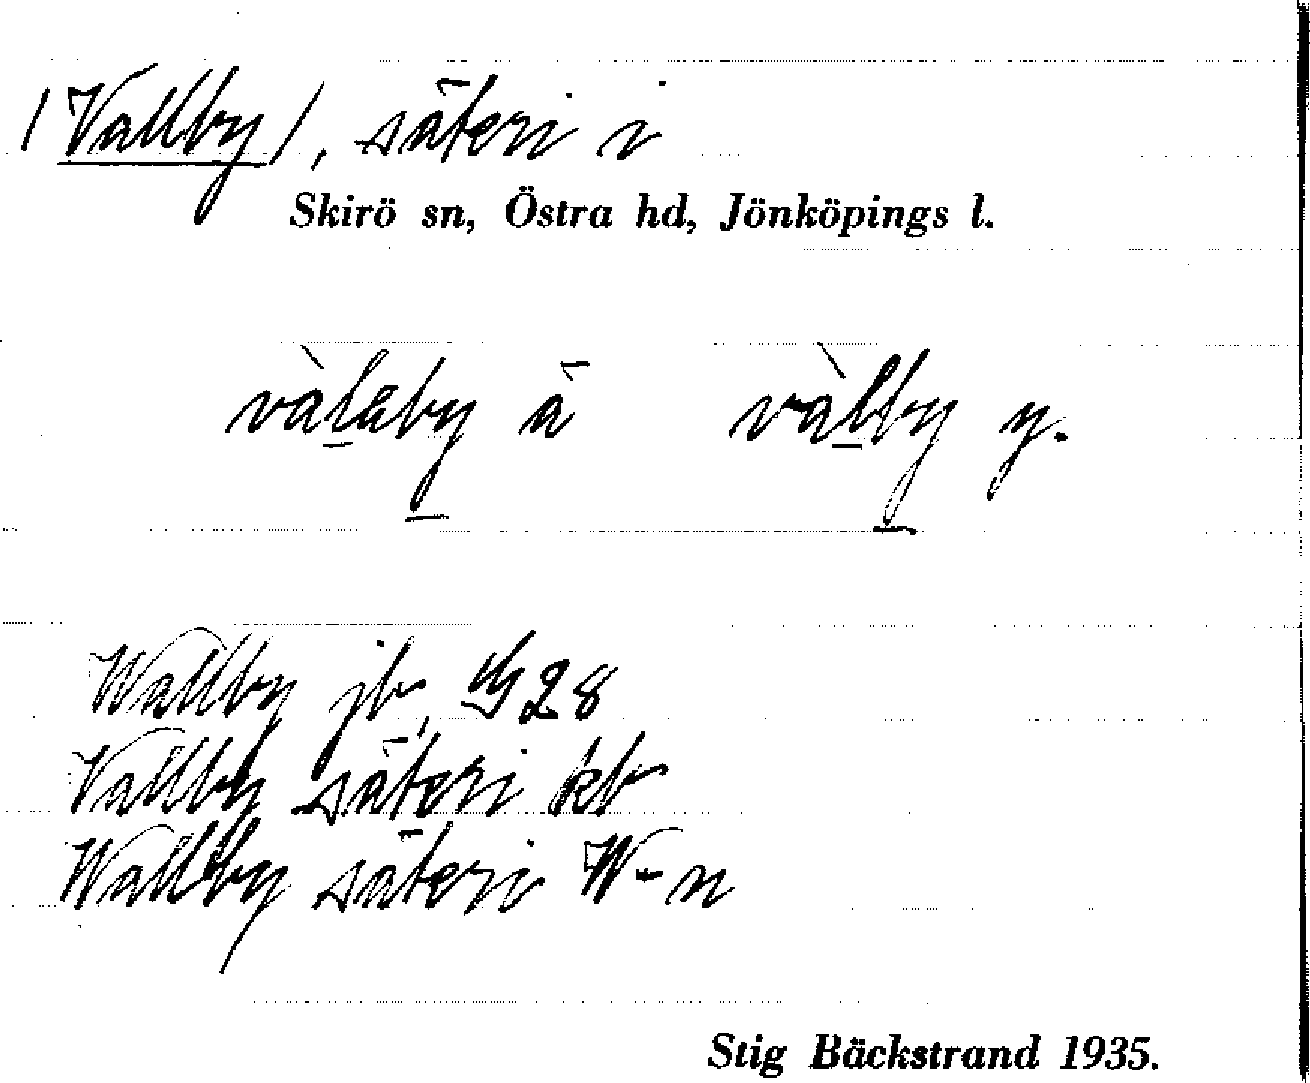 /Vallby/, säteri i
Skirö sn, Östra hd, Jönköpings l.
vàlaby ä vàlby y.
Wallby jb, G 28
Vallby säteri kb
Wallby säteri W-n
Stig Bäckstrand 1935.